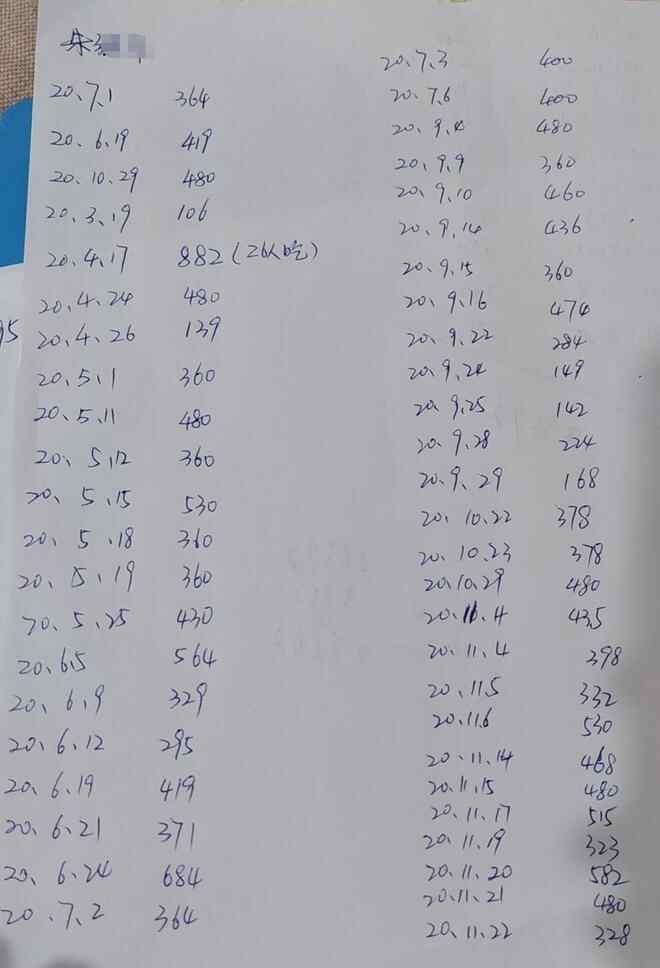 朱
20、7、1 364
20、6、19 419
20、10、29 480
20、3、19 106
20、4、17 882(2人吃)
20、4、24 480
95
20、4、26 139
20、5、1 360
20、5、11 480
20、5、12 360
20、5、15 530
20、5、18 360
20、5、19 360
20、5、25 430
20、6、5 564
20、6、9 329
20、6、12 295
20、6、19 419
20、6、21 371
20、6、24 684
20、7、2 364
20、7、3 400
20、7、6 400
20、9、4 480
20、9、9 360
20、9、10 460
20、9、14 436
20、9、15 360
20、9、16 474
20、9、22 284
20、9、24 149
20、9、25 142
20、9、28 224
20、9、29 168
20、10、22 378
20、10、23 378
20、10、29 480
20、11、4 435
20、11、4 398
20、11、5 332
20、11、6 530
20、11、14 468
20、11、15 480
20、11、17 515
20、11、19 323
20、11、20 582
20、11、21 480
20、11、22 328